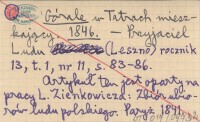 Górale w Tatrach miesz-
kający 1846. — Przyjaciel
Ludu (Leszno) rocznik
13, t. 1, nr 11, s. 83-86.
Artykuł ten jest oparty na
pracy L. Zienkowicza: Zbiór ubio-
rów ludu polskiego. Paryż 1841.